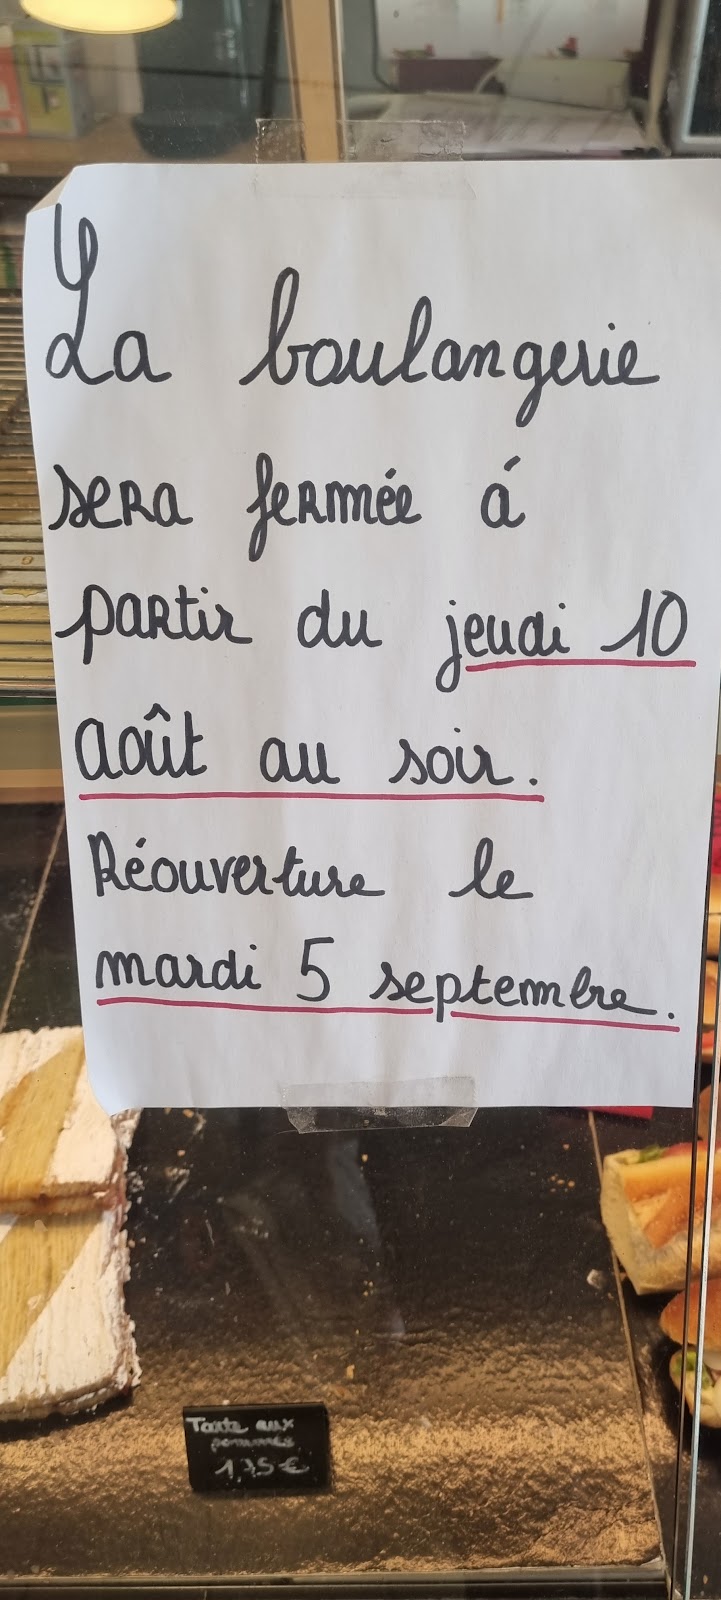 La boulangerie
sera fermée á
partir du jeudi 10
Août au soir.
Réouverture le
mardi 5 septembre.
Tarte aux
pommes
1,75€